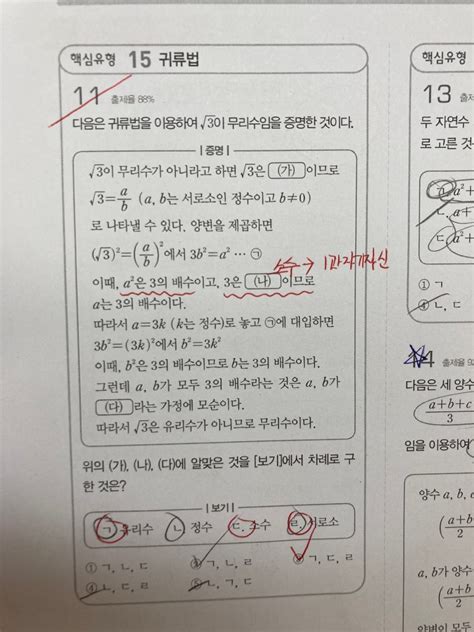 핵심유형 15 귀류법
11 출제율 88%
다음은 귀류법을 이용하여 √3이 무리수임을 증명한 것이다.
증명
√3이 무리수가 아니라고 하면 √3은 (가)이므로
√3=a/b (a, b는 서로소인 정수이고 b≠0)
로 나타낼 수 있다. 양변을 제곱하면
(√3)²=(a/b)²에서 3b²=a² … ㉠
소수 → 1과 자기자신
이때, a²은 3의 배수이고, 3은 (나)이므로
a는 3의 배수이다.
따라서 a=3k (k는 정수)로 놓고 ㉠에 대입하면
3b²=(3k)²에서 b²=3k²
이때, b²은 3의 배수이므로 b는 3의 배수이다.
그런데 a, b가 모두 3의 배수라는 것은 a, b가
(다)라는 가정에 모순이다.
따라서 √3은 유리수가 아니므로 무리수이다.
위의 (가), (나), (다)에 알맞은 것을 [보기]에서 차례로 구
한 것은?
보기
ㄱ. 유리수 ㄴ. 정수 ㄷ. 소수 ㄹ. 서로소
① ㄱ, ㄴ, ㄷ ② ㄱ, ㄴ, ㄹ ③ ㄱ, ㄷ, ㄹ
④ ㄴ, ㄱ, ㄹ ⑤ ㄴ, ㄱ, ㄷ
핵심유형
13 출제
두 자연수
로 고른 것
ㄱ. a²+
ㄴ. a+
ㄷ. a²+
① ㄱ
④ ㄴ, ㄹ
14 출제율 92
다음은 세 양수
a+b+c/3
임을 이용하여
양수 a, b, c
(a+b/2
a, b가 양수
(a+b/2
양변이 모두